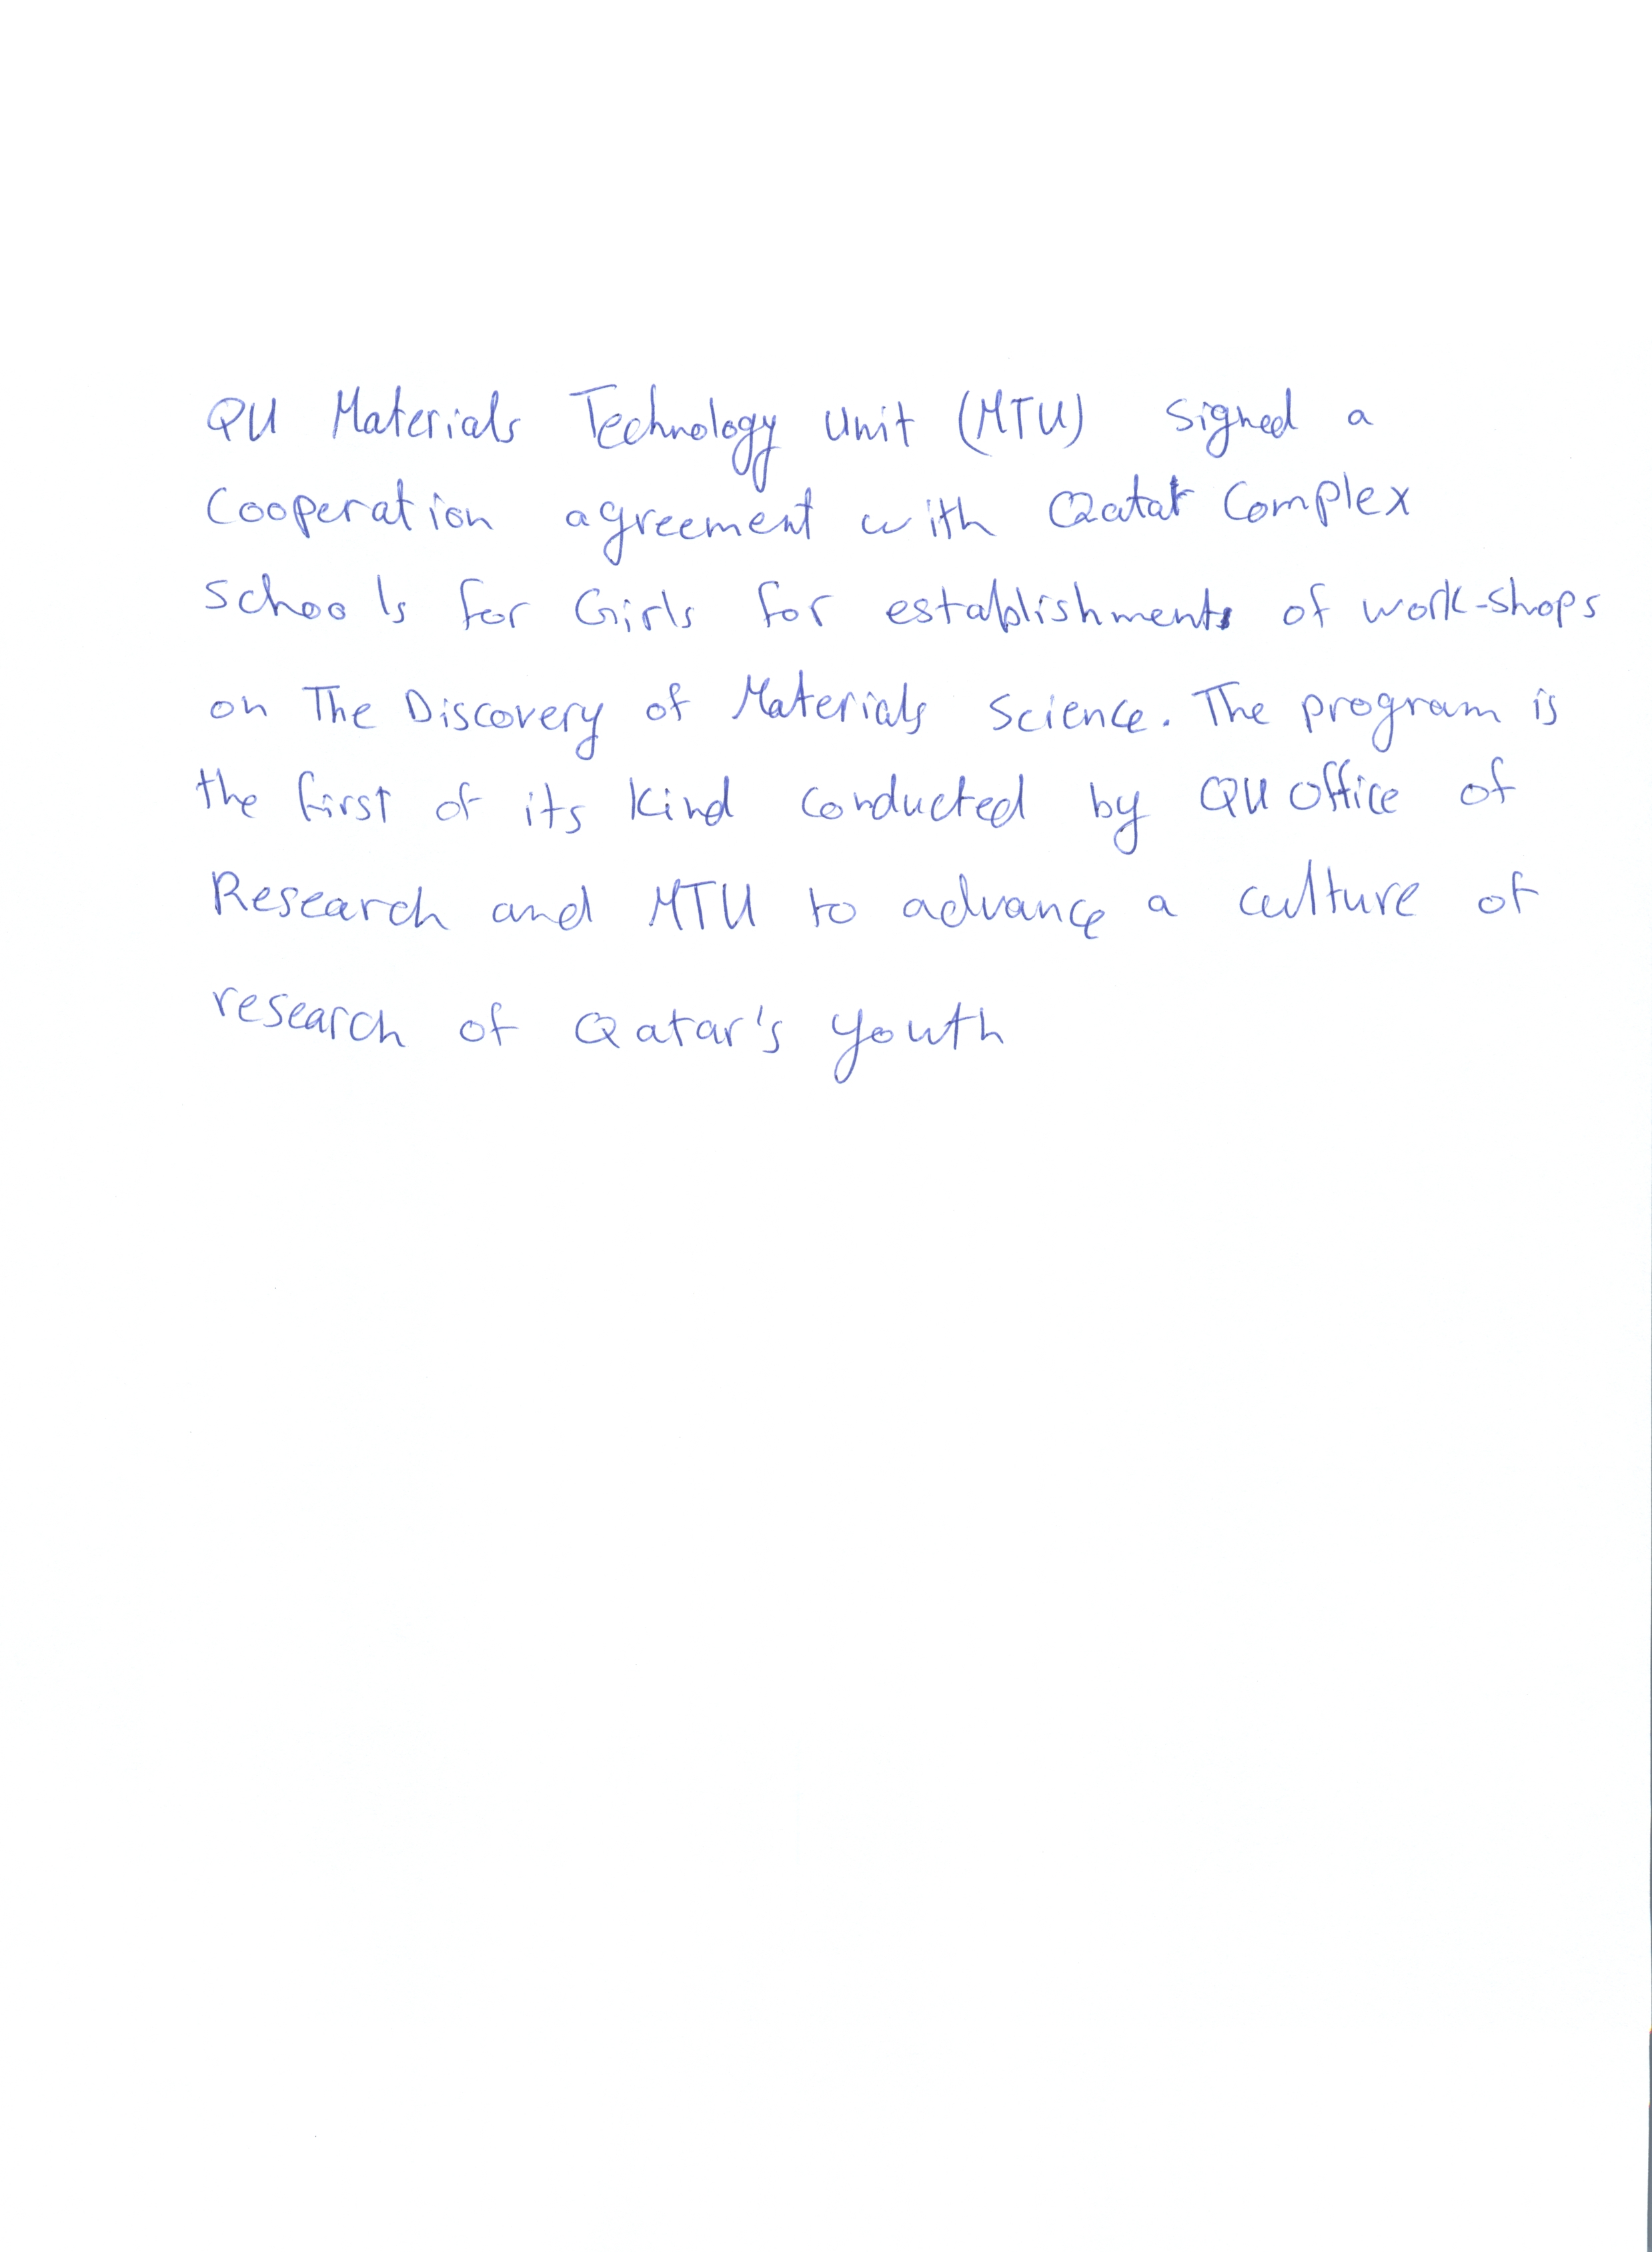 QU Materials Technology Unit (MTU) signed a
Cooperation agreement with Qatar Complex
Schools for Girls for establishments of work-shops
on The Discovery of Materials Science. The program is
the first of its kind conducted by QU Office of
Research and MTU to advance a culture of
research of Qatar's youth